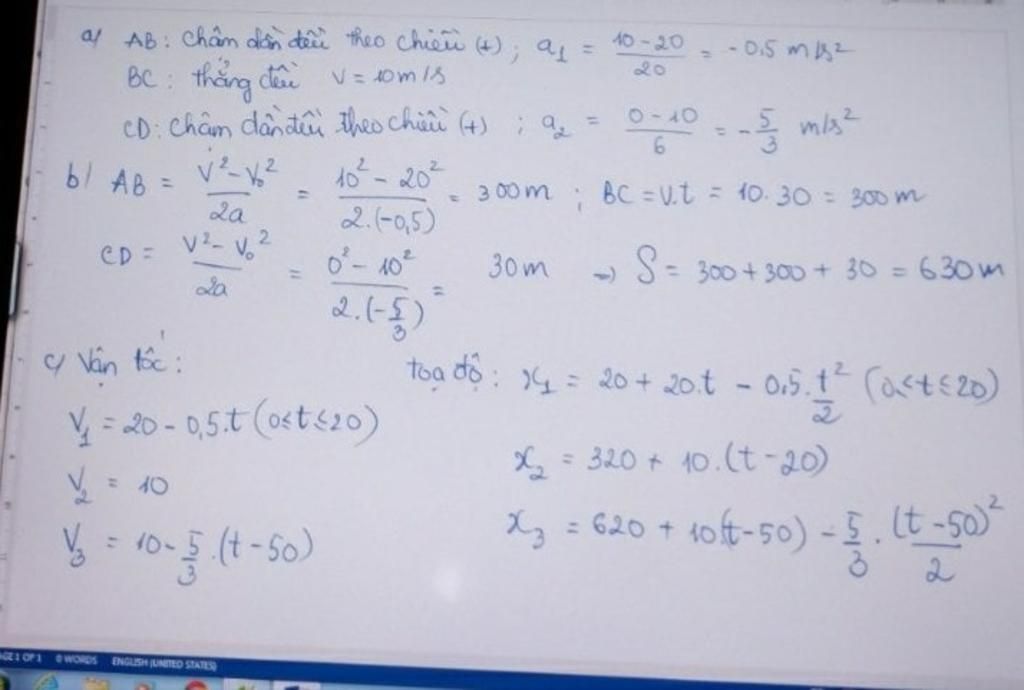 a/ AB: Chậm dần đều theo chiều (+); a₁ = (10-20)/20 = -0,5 m/s²
BC: thẳng đều V = 10m/s
CD: Chậm dần đều theo chiều (+); a₂ = (0-10)/6 = -5/3 m/s²
b/ AB = (V²-V₀²)/2a = (10²-20²)/(2.(-0,5)) = 300m; BC = v.t = 10.30 = 300m
CD = (V²-V₀²)/2a = (0²-10²)/(2.(-5/3)) = 30m => S = 300+300+30 = 630m
c/ Vận tốc: toạ độ: x₁ = 20+20.t - 0,5.t²/2 (0<t≤20)
V₁ = 20-0,5.t (0≤t≤20)
x₂ = 320+10.(t-20)
V₂ = 10
x₃ = 620+10(t-50) - 5/3.(t-50)²/2
V₃ = 10-5/3.(t-50)
PAGE 1 OF 1 0 WORDS ENGLISH (UNITED STATES)